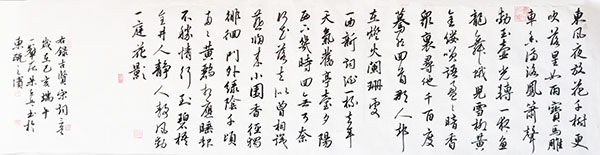 東風夜放花千樹更
吹落星如雨寶馬雕
車香滿路鳳簫聲
動玉壺光轉一夜魚
龍舞蛾兒雪柳黃
金縷笑語盈盈暗香
眾裏尋他千百度
驀然回首那人却
在燈火闌珊處
一曲新詞酒一杯去年
天氣舊亭臺夕陽
西下幾時回無可奈
何花落去似曾相識
燕歸來小園香徑獨
徘徊門外綠陰千頃
兩兩黃鸝相應睡起
不勝情行到碧梧
金井人靜人靜風動
一庭花影
右錄古賢宋詞三首